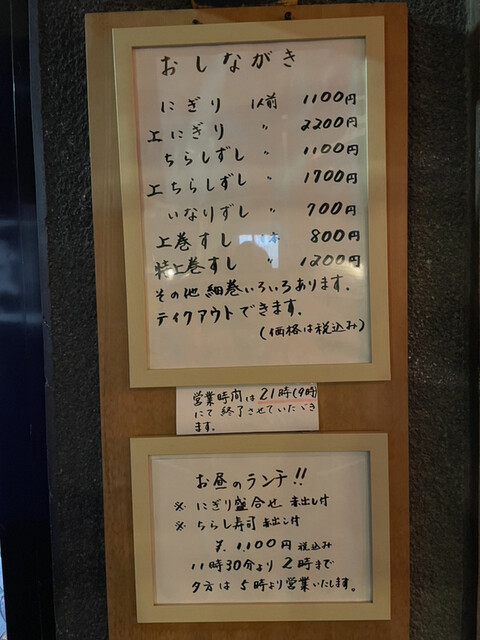 おしながき
にぎり 1人前 1100円
上にぎり 〃 2200円
ちらしずし 〃 1100円
上ちらしずし 〃 1700円
いなりずし 〃 700円
上巻すし 本 800円
特上巻すし 〃 1200円
その他細巻いろいろあります.
テイクアウトできます.
(価格は税込み)
営業時間は 21時(9時)
にて終了させていただき
ます.
お昼のランチ!!
※ にぎり盛合せ 赤出し付
※ ちらし寿司 赤出し付
¥. 1.100円 税込み
11時30分より 2時まで
夕方は 5時より営業いたします。